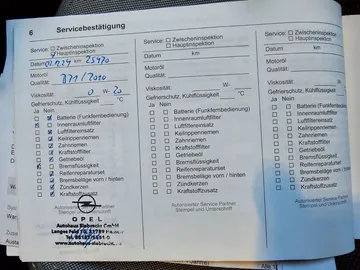 6 Servicebestätigung
Service: Zwischeninspektion
Hauptinspektion
Datum 02.12.24 km 25470
Motoröl
Qualität:
Viskosität: 0 W- 20
Gefrierschutz, Kühlflüssigkeit °C
Ja Nein
Batterie (Funkfernbedienung)
Innenraumluftfilter
Luftfiltereinsatz
Keilrippenriemen
Zahnriemen
Kraftstofffilter
Getriebeöl
Bremsflüssigkeit
Reifenreparaturset
Bremsbeläge vorn / hinten
Zündkerzen
Kraftstoffzusatz
Autorisierter Service Partner
Stempel und Unterschrift
OPEL
Service: Zwischeninspektion
Hauptinspektion
Datum km
Motoröl
Qualität:
Viskosität: W-
Gefrierschutz, Kühlflüssigkeit °C
Ja Nein
Batterie (Funkfernbedienung)
Innenraumluftfilter
Luftfiltereinsatz
Keilrippenriemen
Zahnriemen
Kraftstofffilter
Getriebeöl
Bremsflüssigkeit
Reifenreparaturset
Bremsbeläge vorn / hinten
Zündkerzen
Kraftstoffzusatz
Autorisierter Service Partner
Stempel und Unterschrift
Service: Zwischeninspektion
Hauptinspektion
Datum km
Motoröl
Qualität:
Viskosität: W-
Gefrierschutz, Kühlflüssigkeit
Ja Nein
Batterie (Funkfernbedienung)
Innenraumluftfilter
Luftfiltereinsatz
Keilrippenriemen
Zahnriemen
Kraftstofffilter
Getriebeöl
Bremsflüssigkeit
Reifenreparaturset
Bremsbeläge vorn / hinten
Zündkerzen
Kraftstoffzusatz
Autorisierter Service Partner
Stempel und Unterschrift